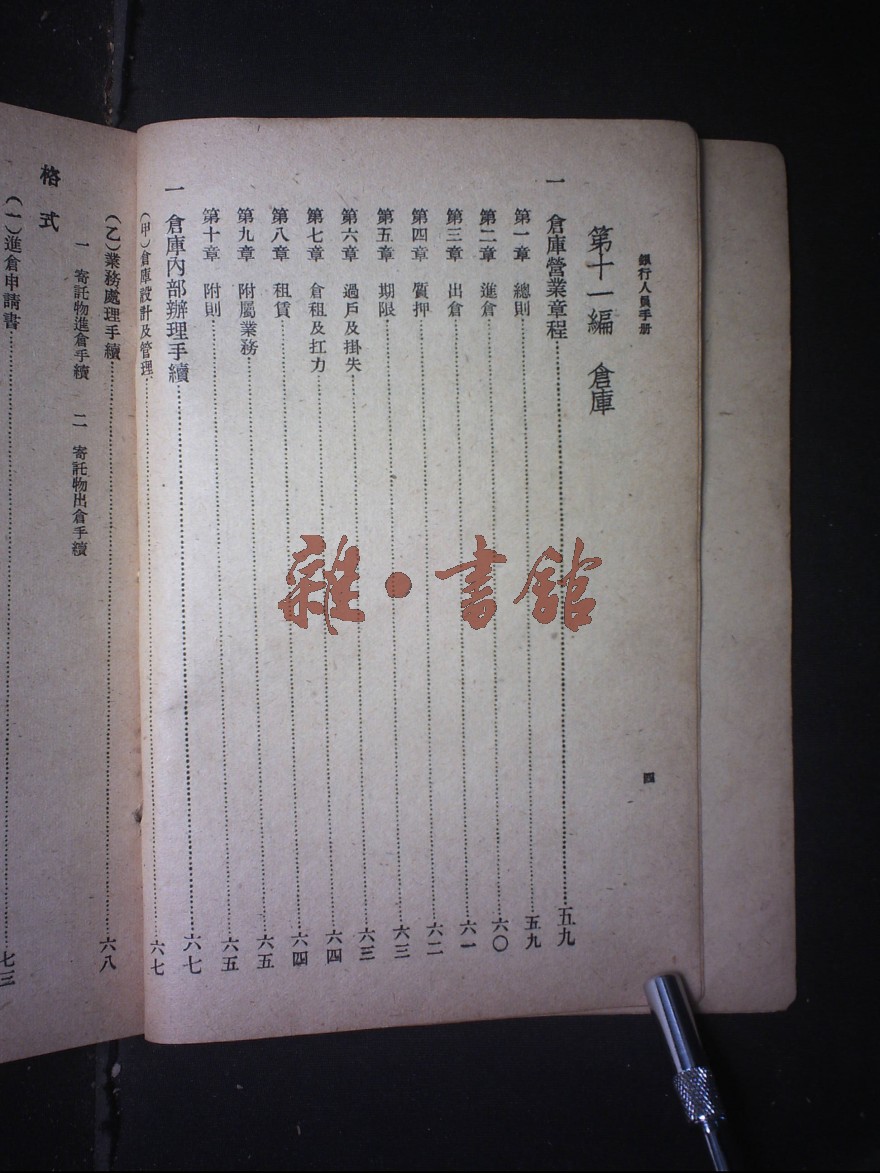 銀行人員手册
四
第十一編 倉庫
一 倉庫營業章程……五九
第一章 總則……五九
第二章 進倉……六〇
第三章 出倉……六一
第四章 質押……六二
第五章 期限……六三
第六章 過戶及掛失……六三
第七章 倉租及扛力……六四
第八章 租賃……六四
第九章 附屬業務……六五
第十章 附則……六五
一 倉庫內部辦理手續……六七
(甲)倉庫設計及管理……六七
(乙)業務處理手續……六八
一 寄託物進倉手續 二 寄託物出倉手續
格式
(一)進倉申請書……七三
雜·書館